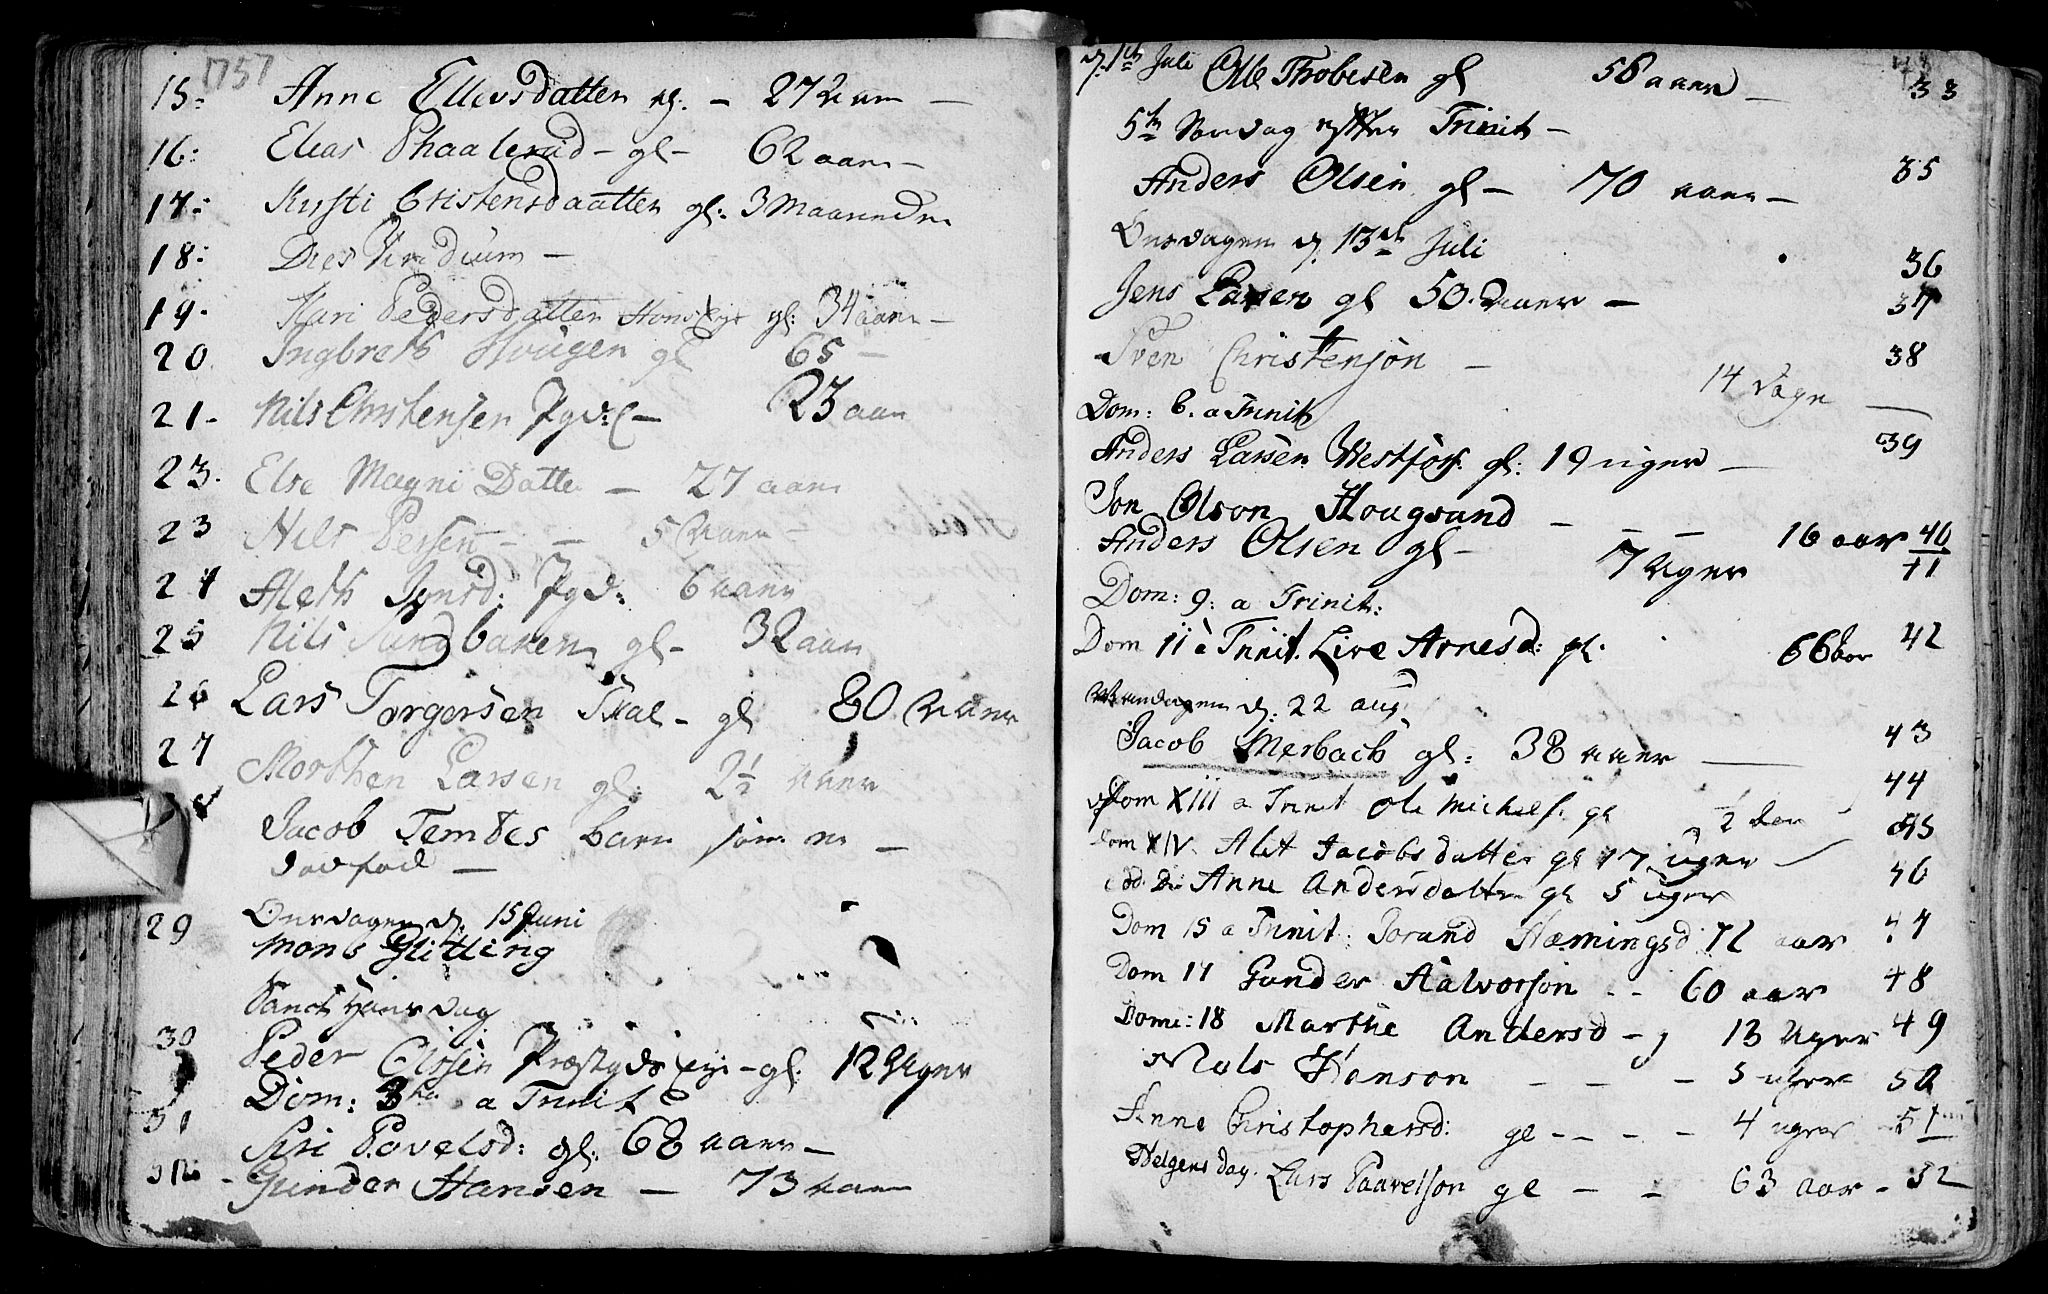 1757
15: Anne Ellevsdatter gl. - 27 Aar -
16: Elias Phaalerud - gl - 62 aar -
17: Kirsti Cristensdaatter gl: 3 Maaneder
18: Dies Viridium -
19. Kari Pedersdatter gl: 34 aar -
20. Ingbret Hougen gl 65 -
21 - Nils Christensen 23 aar
23. Else Magni Datter - 27 aar
23 Nils Persen - - 5 Aar -
24 Aleth Jonsd: 6 aar
25 Nils Sundbaken gl - 32 aar
26 Lars Torgersen - gl 80 Aar
27 Morthen Larsen gl: 2½ Aar
Jacob Temtes barn som er
dødfød -
29 Onsdagen d. 15 Juni
Mons Glitting
Sanct Hans dag
30 Peder Olsen Præstgds Eje - gl: 12 Uger
Dom: 3tia a Trinit
31 Siri Povelsd: gl: 68 aar -
32 - Gunder Hansen - 73 aar
d. 1te Juli Olle Thobesen gl 58 aar - 33
5te Søndag efter Trinit -
Anders Olsen gl - 70 aar - 35
Onsdagen d. 13de Juli 36
Jens Larsen gl 50 Aar - 37
Sven Christensøn - 14 Dage 38
Dom: 6. a Trinit
Anders Larsen Westfos. gl: 19 uger - 39
Jon Olson Hougsund - - - 16 aar 40
Anders Olsen gl - 7 Uger 41
Dom: 9: a Trinit:
Dom 11 à Trinit. Live Arnesd: gl. 66 aar 42
Mandagen d: 22 aug
Jacob Merbach gl: 38 aar - 43
Dom XIII a Trinit Ole Michels. gl 44
Dom XIV. Alet Jacobsdatter gl 17 uger 45
Anne Andersdatter gl 5 uger 46
Dom 15 a Trinit: Jorand Hæmingsd 72 aar 47
Dom 17 Gunder Halvorsøn - - 60 aar 48
Dome: 18 Marthe Andersd - 13 Uger 49
Niels Hanson - - - 5 uger 50
Anne Christophersd: gl - - - - 4 uger 51
Helgens dag. Lars Paavelsøn gl - - 63 aar - 52